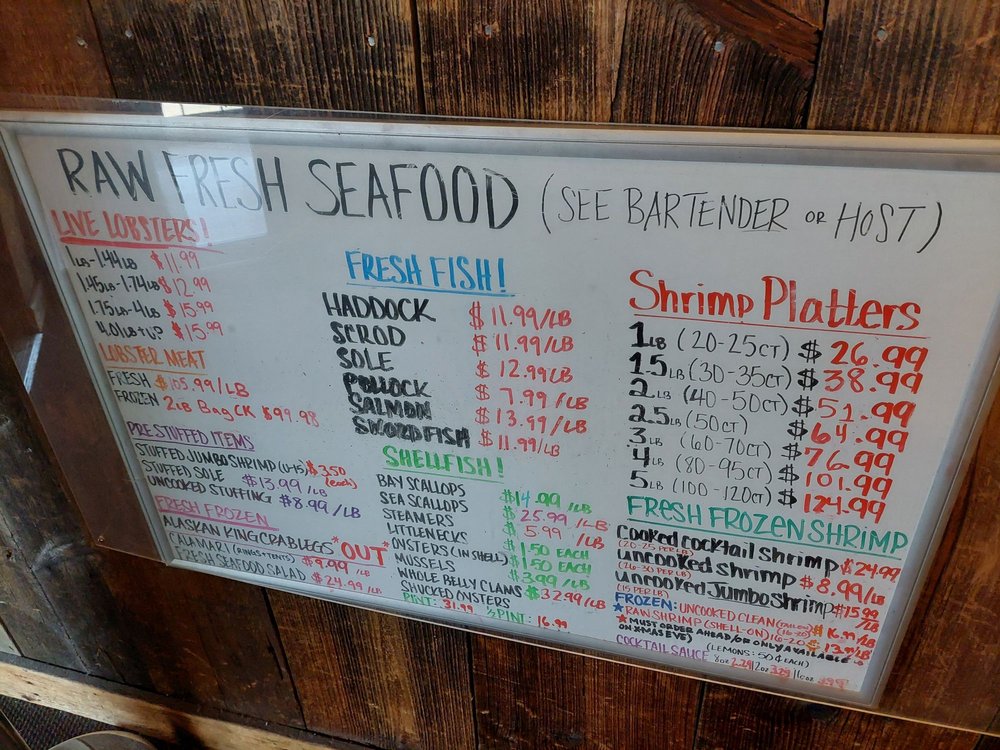 RAW FRESH SEAFOOD (SEE BARTENDER OR HOST)
LIVE LOBSTERS!
1LB-1.44LB $11.99
1.45LB-1.74LB $12.99
1.75LB-4LB $15.99
4.01LB-UP $15.99
LOBSTER MEAT
FRESH $105.99/LB
FROZEN 2LB Bag CK $99.98
PRESTUFFED ITEMS
STUFFED JUMBO SHRIMP (U-15) $3.50 (each)
STUFFED SOLE $13.99/LB
UNCOOKED STUFFING $8.99/LB
FRESH FROZEN
ALASKAN KING CRAB LEGS "OUT"
CALAMARI (RINGS+TENTS) $9.99/LB
FRESH SEAFOOD SALAD $24.99
FRESH FISH!
HADDOCK $11.99/LB
SCROD $11.99/LB
SOLE $12.99LB
POLLOCK $7.99/LB
SALMON $13.99/LB
SWORDFISH $11.99/LB
SHELLFISH!
BAY SCALLOPS $14.99/LB
SEA SCALLOPS $25.99/LB
STEAMERS $5.99/LB
LITTLENECKS $1.50 EACH
OYSTERS (IN SHELL) $1.50 EACH
MUSSELS $3.99/LB
WHOLE BELLY CLAMS $32.99/LB
SHUCKED OYSTERS
PINT: 31.99 ½ PINT: 16.99
Shrimp Platters
1LB (20-25CT) $26.99
1.5LB (30-35CT) $38.99
2LB (40-50CT) $51.99
2.5LB (50CT) $64.99
3LB (60-70CT) $76.99
4LB (80-95CT) $101.99
5LB (100-120CT) $124.99
FRESH FROZEN SHRIMP
Cooked cocktail shrimp $24.99
(20-25 PER LB)
uncooked shrimp $8.99/LB
(26-30 PER LB)
uncooked Jumbo Shrimp $15.99/LB
(15 PER LB)
FROZEN: UNCOOKED CLEAN $16.99/LB
RAW SHRIMP (SHELL-ON) 16-20
MUST ORDER AHEAD/OR ONLY AVAILABLE
ON XMAS EVE) (LEMONS: 50¢ EACH)
COCKTAIL SAUCE 8oz 2.29 12oz 3.29 16oz